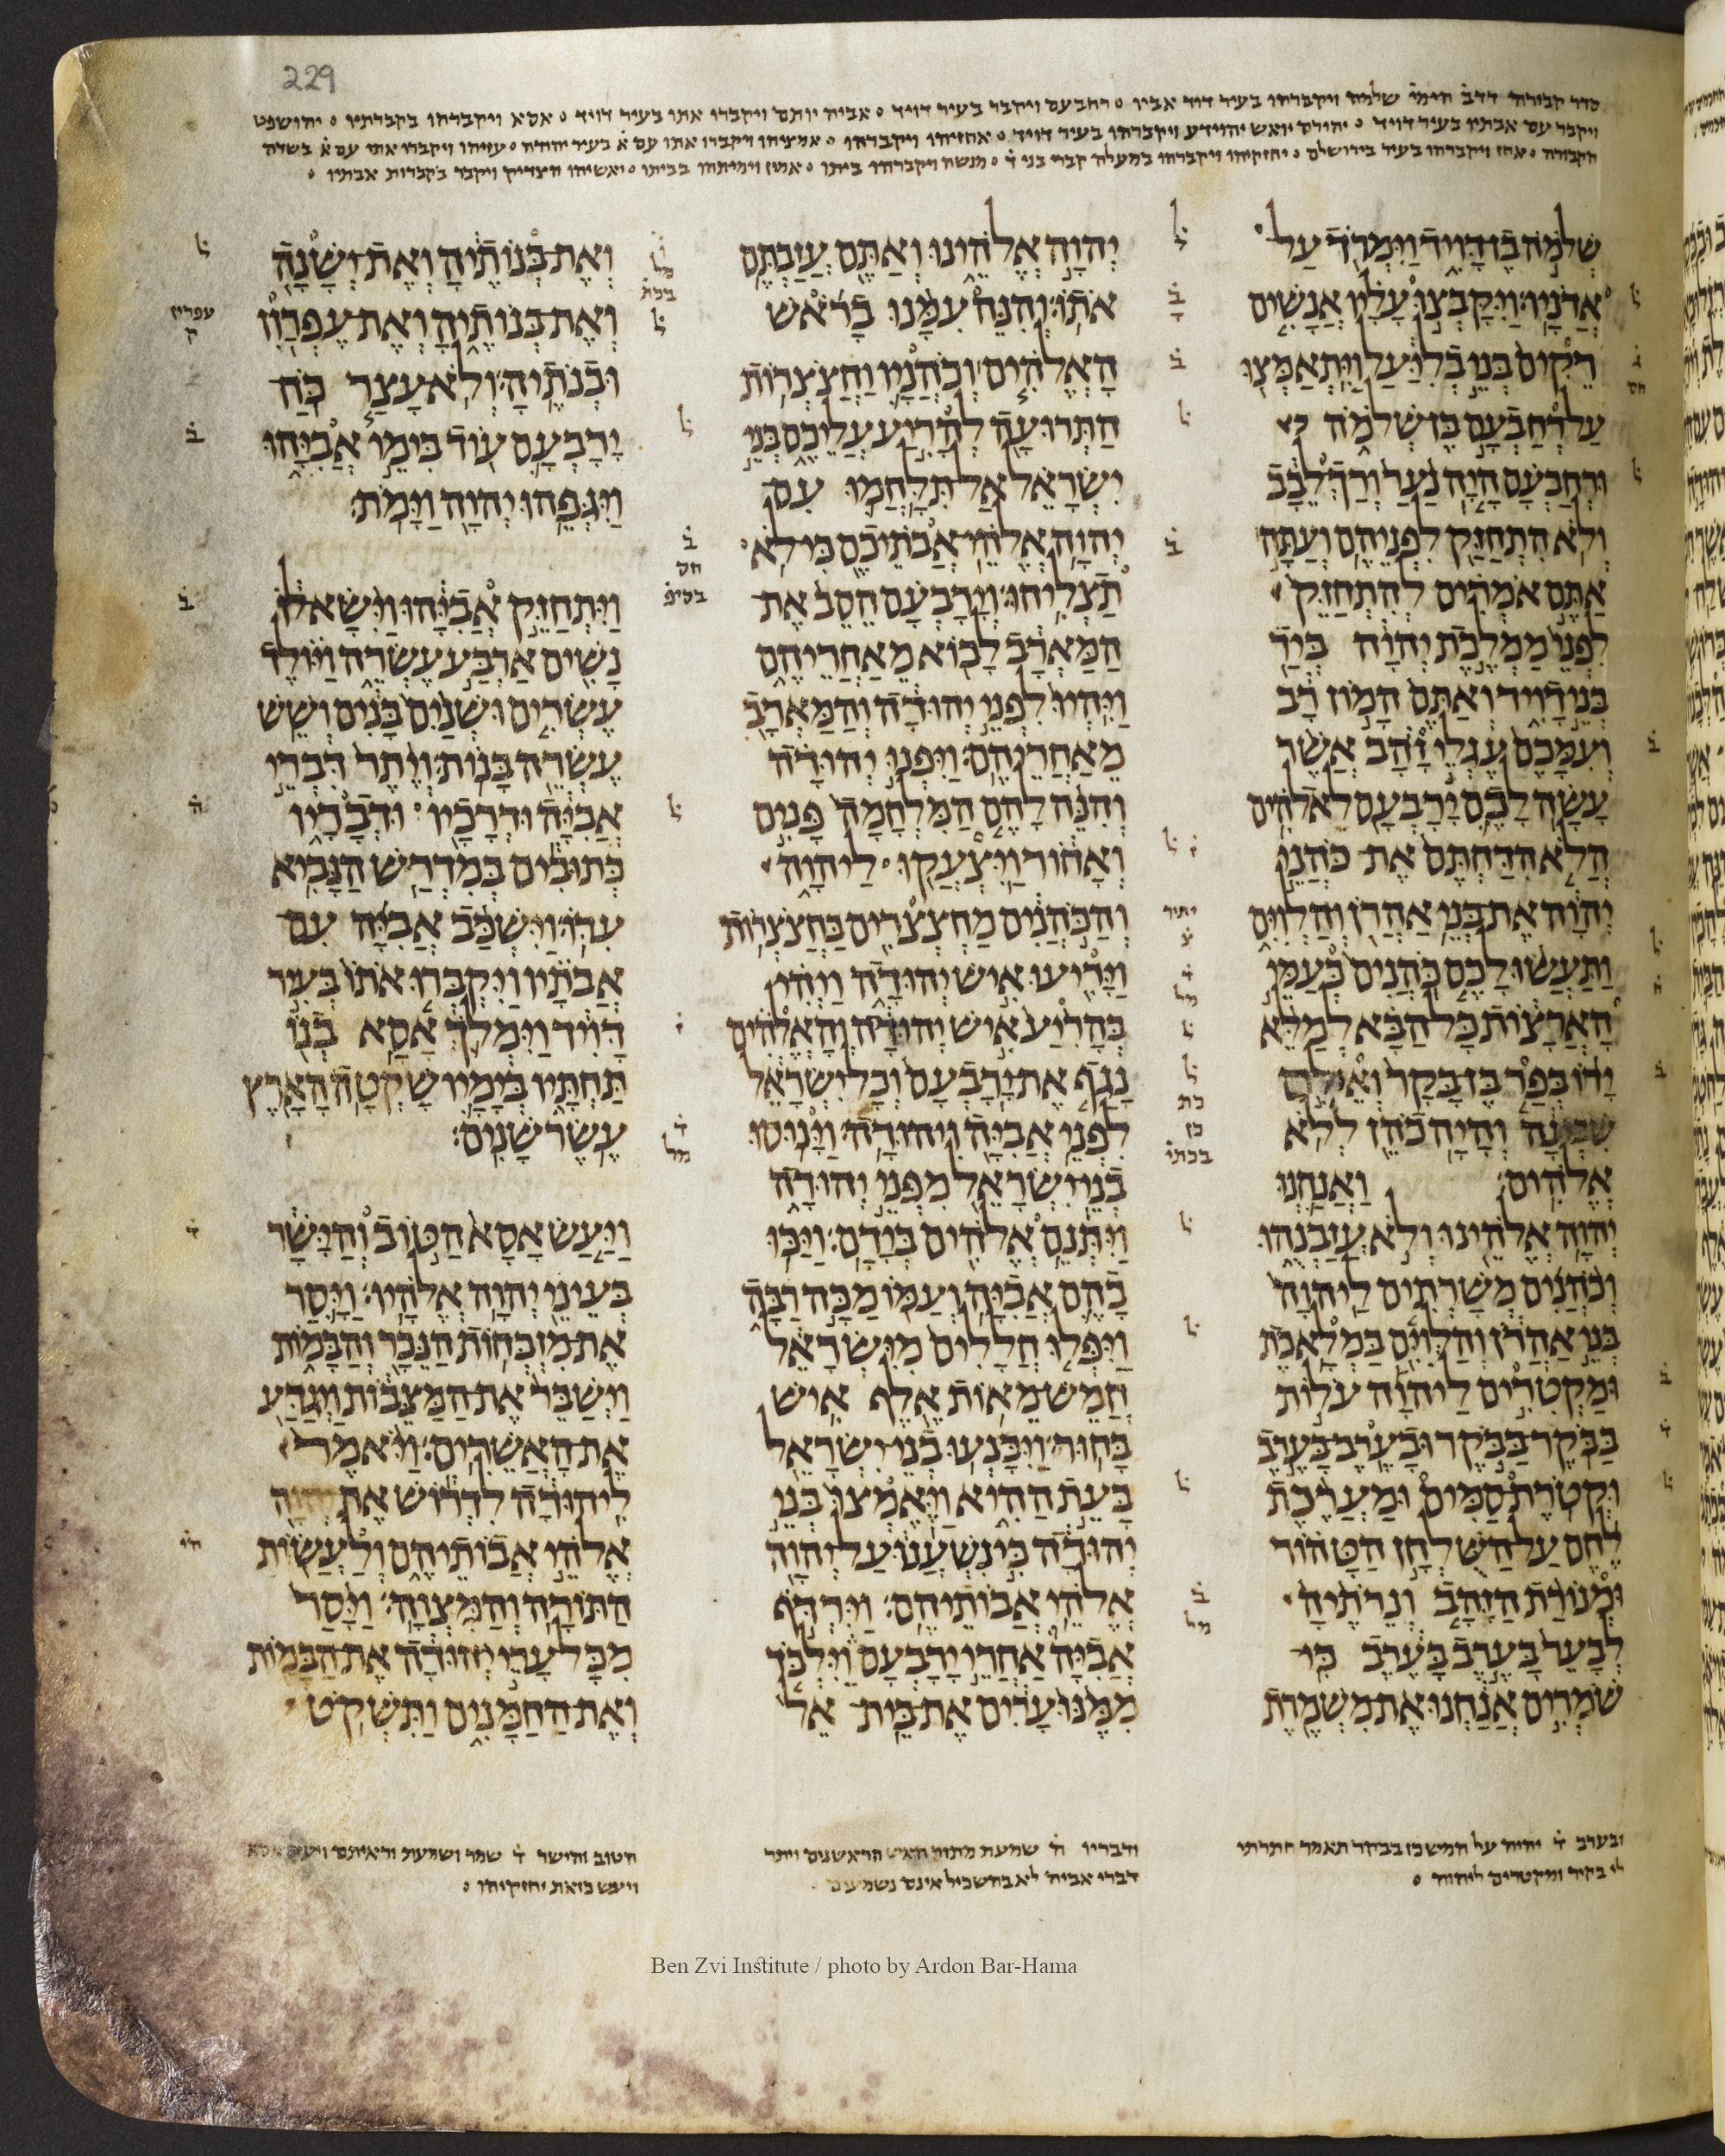 229
סדר קבורת דדב הימי שלמה ויקברהו בעיר דוד אביו ○ רחבעם ויקבר בעיר דויד ○ אביה יותם ויקברו אתו בעיר דויד ○ אסא ויקברהו בקברתיו ○ יהושפט
ויקבר עם אבתיו בעיר דויד ○ יהורם יואש יהוידע ויקברהו בעיר דויד ○ אחזיהו ויקברהו ○ אמציהו ויקברו אתו עם א בעיר יהודה ○ עזיהו ויקברו אתו עם א בשדה
הקבורה ○ אחז ויקברהו בעיר בירושלם ○ יחזקיהו ויקברהו במעלה קברי בני ד ○ מנשה ויקברהו ביתו ○ אמון וימיתהו בביתו ○ יאשיהו הצדיק ויקבר בקברות אבתיו ○
שלמה בן דויד וימרד על
אדניו׃ ויקבצו עליו אנשים
רקים בני בליעל ויתאמצו
על רחבעם בן שלמה
ורחבעם היה נער ורך לבב
ולא התחזק לפניהם׃ ועתה
אתם אמרים להתחזק
לפני ממלכת יהוה ביד
בני דויד ואתם המון רב
ועמכם עגלי זהב אשר
עשה לכם ירבעם לאלהים
הלא הדחתם את כהני
יהוה את בני אהרן והלוים
ותעשו לכם כהנים כעמי
הארצות כל הבא למלא
ידו בפר בן בקר ואילם
שבעה והיה כהן ללא
אלהים׃ ואנחנו
יהוה אלהינו ולא עזבנהו
וכהנים משרתים ליהוה
בני אהרן והלוים במלאכת
ומקטרים ליהוה עלות
בבקר בבקר ובערב בערב
וקטרת סמים ומערכת
לחם על השלחן הטהור
ומנורת הזהב ונרתיה
לבער בערב בערב כי
שמרים אנחנו את משמרת
יהוה אלהינו ואתם עזבתם
אתו׃ והנה עמנו בראש
האלהים וכהניו וחצצרות
התרועה להריע עליכם בני
ישראל אל תלחמו עם
יהוה אלהי אבתיכם כי לא
תצליחו׃ וירבעם הסב את
המארב לבוא מאחריהם
ויהיו לפני יהודה והמארב
מאחריהם׃ ויפנו יהודה
והנה להם המלחמה פנים
ואחור ויצעקו ליהוה
והכהנים מחצצרים בחצצרות
ויריעו איש יהודה ויהי
בהריע איש יהודה והאלהים
נגף את ירבעם וכל ישראל
לפני אביה ויהודה׃ וינוסו
בני ישראל מפני יהודה
ויתנם אלהים בידם׃ ויכו
בהם אביה ועמו מכה רבה
ויפלו חללים מישראל
חמש מאות אלף איש
בחור׃ ויכנעו בני ישראל
בעת ההיא ויאמצו בני
יהודה כי נשענו על יהוה
אלהי אבותיהם׃ וירדף
אביה אחרי ירבעם וילכד
ממנו ערים את בית אל
ואת בנותיה ואת ישנה
ואת בנותיה ואת עפרון
ובנתיה׃ ולא עצר כח
ירבעם עוד בימי אביהו
ויגפהו יהוה וימת׃
ויתחזק אביהו וישא לו
נשים ארבע עשרה ויולד
עשרים ושנים בנים ושש
עשרה בנות׃ ויתר דברי
אביה ודרכיו ודבריו
כתובים במדרש הנביא
עדו׃ וישכב אביה עם
אבתיו ויקברו אתו בעיר
דויד וימלך אסא בנו
תחתיו בימיו שקטה הארץ
עשר שנים׃
ויעש אסא הטוב והישר
בעיני יהוה אלהיו׃ ויסר
את מזבחות הנכר והבמות
וישבר את המצבות ויגדע
את האשרים׃ ויאמר
ליהודה לדרוש את יהוה
אלהי אבותיהם ולעשות
התורה והמצוה׃ ויסר
מכל ערי יהודה את הבמות
ואת החמנים ותשקט
ובערב ד יהיה על המשכן בבקר תאמר חתרתי
לי בקיר ומקטרים ליהוה ○
ודבריו ה שמעת מתוך האש הראשנים ויתר
דברי אביה לא בהשכיל אינם נשמעים
הטוב והישר ד שמר ושמעת וראיתם ויעש אסא
ויעש כזאת יחזקיהו ○
Ben Zvi Institute / photo by Ardon Bar-Hama